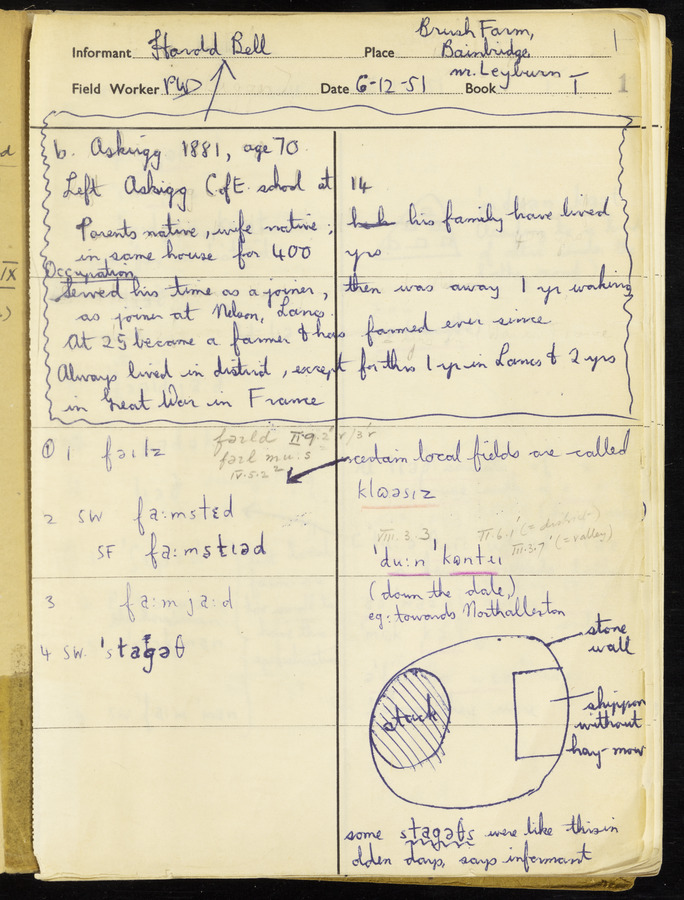 Informant Harold Bell Place Brush Farm, Bainbridge, nr. Leyburn
Field Worker PWD Date 6-12-51 Book I 1
b. Askrigg 1881, age 70.
Left Askrigg C of E. school at 14
Parents native, wife native; his family have lived
in same house for 400 yrs
Occupation
Served his time as a joiner, then was away 1 yr working
as joiner at Nelson, Lancs.
At 25 became a farmer & has farmed ever since.
Always lived in district, except for this 1 yr in Lancs & 2 yrs
in Great War in France
① 1 fəılz
fəıld II.9.2' v/3'v
fəıl m.u.s
IV.5.2²
certain local fields are called
klɷəsız
2 SW fa:mstɛd
SF fa:mstıəd
3 fa:m ja:d
4 SW. 'stagəθ
VIII.3.3
II.6.1' (= district)
III.3.7' (= valley)
'du:n 'kɷntɹı
(down the dale,)
eg: towards Northallerton
stone
wall
stack
shippon
without
hay-mow
some stagəθs were like this in
olden days, says informant